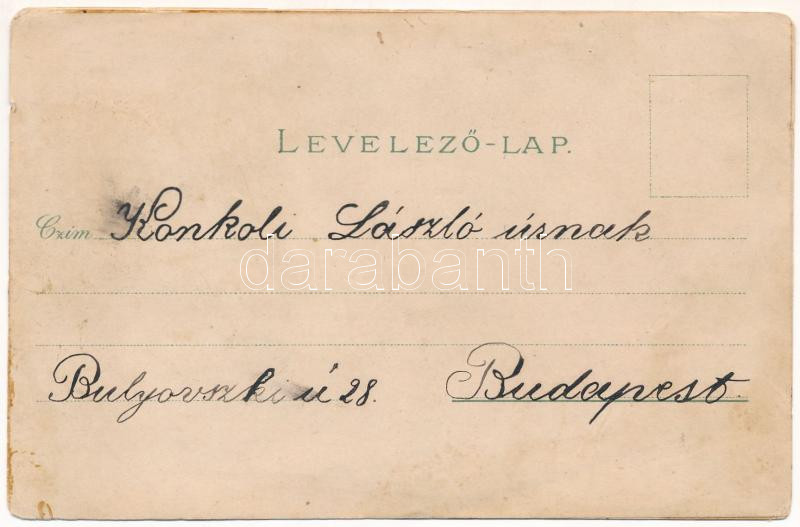 LEVELEZŐ-LAP.
Czim Konkoli László úrnak
darabanth
Bulyovszki ú 28. Budapest.